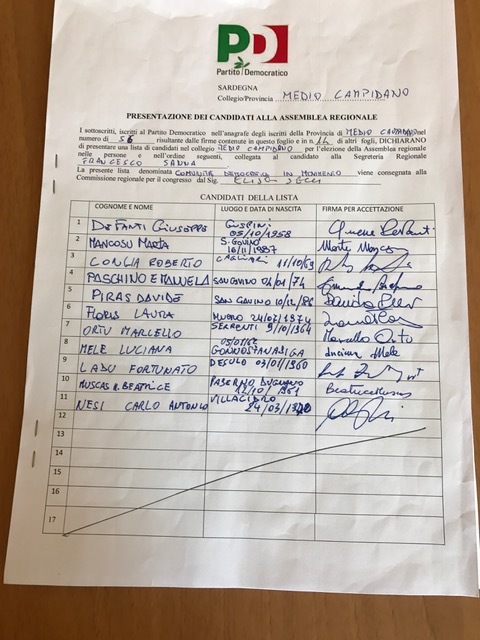 PD
Partito Democratico
SARDEGNA
Collegio/Provincia MEDIO CAMPIDANO
PRESENTAZIONE DEI CANDIDATI ALLA ASSEMBLEA REGIONALE
I sottoscritti, iscritti al Partito Democratico nell'anagrafe degli iscritti della Provincia di MEDIO CAMPIDANO nel
numero di 56 risultante dalle firme contenute in questo foglio e in n. 14 di altri fogli, DICHIARANO
di presentare una lista di candidati nel collegio MEDIO CAMPIDANO per l'elezione della Assemblea regionale
nelle persone e nell'ordine seguenti, collegata al candidato alla Segreteria Regionale
FRANCESCO SANNA
La presente lista denominata COMUNITÀ DEMOCRATICA IN MOVIMENTO viene consegnata alla
Commissione regionale per il congresso dal Sig.
CANDIDATI DELLA LISTA
COGNOME E NOME LUOGO E DATA DI NASCITA FIRMA PER ACCETTAZIONE
1 DEFANTI GIUSEPPE GUSPINI 05/10/1958
2 MANCOSU MARTA S. GAVINO 16/11/1987 Marta Mancosu
3 CONGIA ROBERTO CAGLIARI 11/10/69
4 PASCHINO EMANUELA SAN GAVINO 04/01/74
5 PIRAS DAVIDE SAN GAVINO 10/12/88
6 FLORIS LAURA NUORO 24/07/1974
7 ORTU MARCELLO SERRENTI 9/10/1964 Marcello Ortu
8 MELE LUCIANA 05/01/62 GONNOSTRAMATZA Luciana Mele
9 LADU FORTUNATO 03/01/1960
10 MUSCAS R. BEATRICE PADERNO DUGNANO 1961 Beatrice Muscas
11 NESI CARLO ANTONIO VILLACIDRO 24/03/
12
13
14
15
16
17